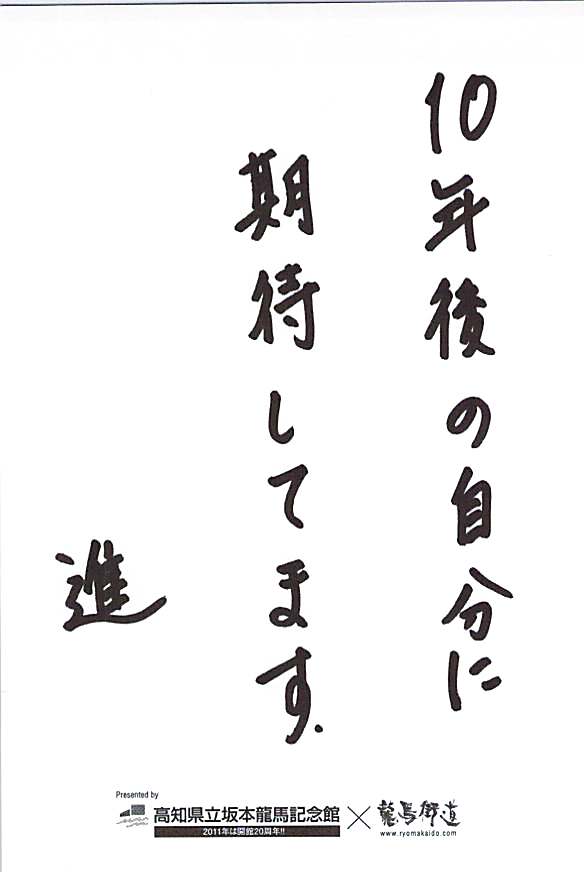 10年後の自分に
期待してます.
進
Presented by
高知県立坂本龍馬記念館 × 龍馬街道
2011年は開館20周年!!
www.ryomakaido.com